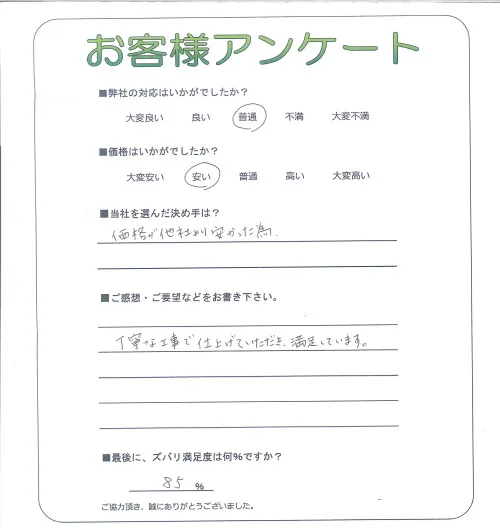 お客様アンケート
■弊社の対応はいかがでしたか？
大変良い 良い 普通 不満 大変不満
■価格はいかがでしたか？
大変安い 安い 普通 高い 大変高い
■当社を選んだ決め手は？
価格が他社より安かった為.
■ご感想・ご要望などをお書き下さい。
丁寧な工事で仕上げていただき、満足しています。
■最後に、ズバリ満足度は何％ですか？
85 ％
ご協力頂き、誠にありがとうございました。